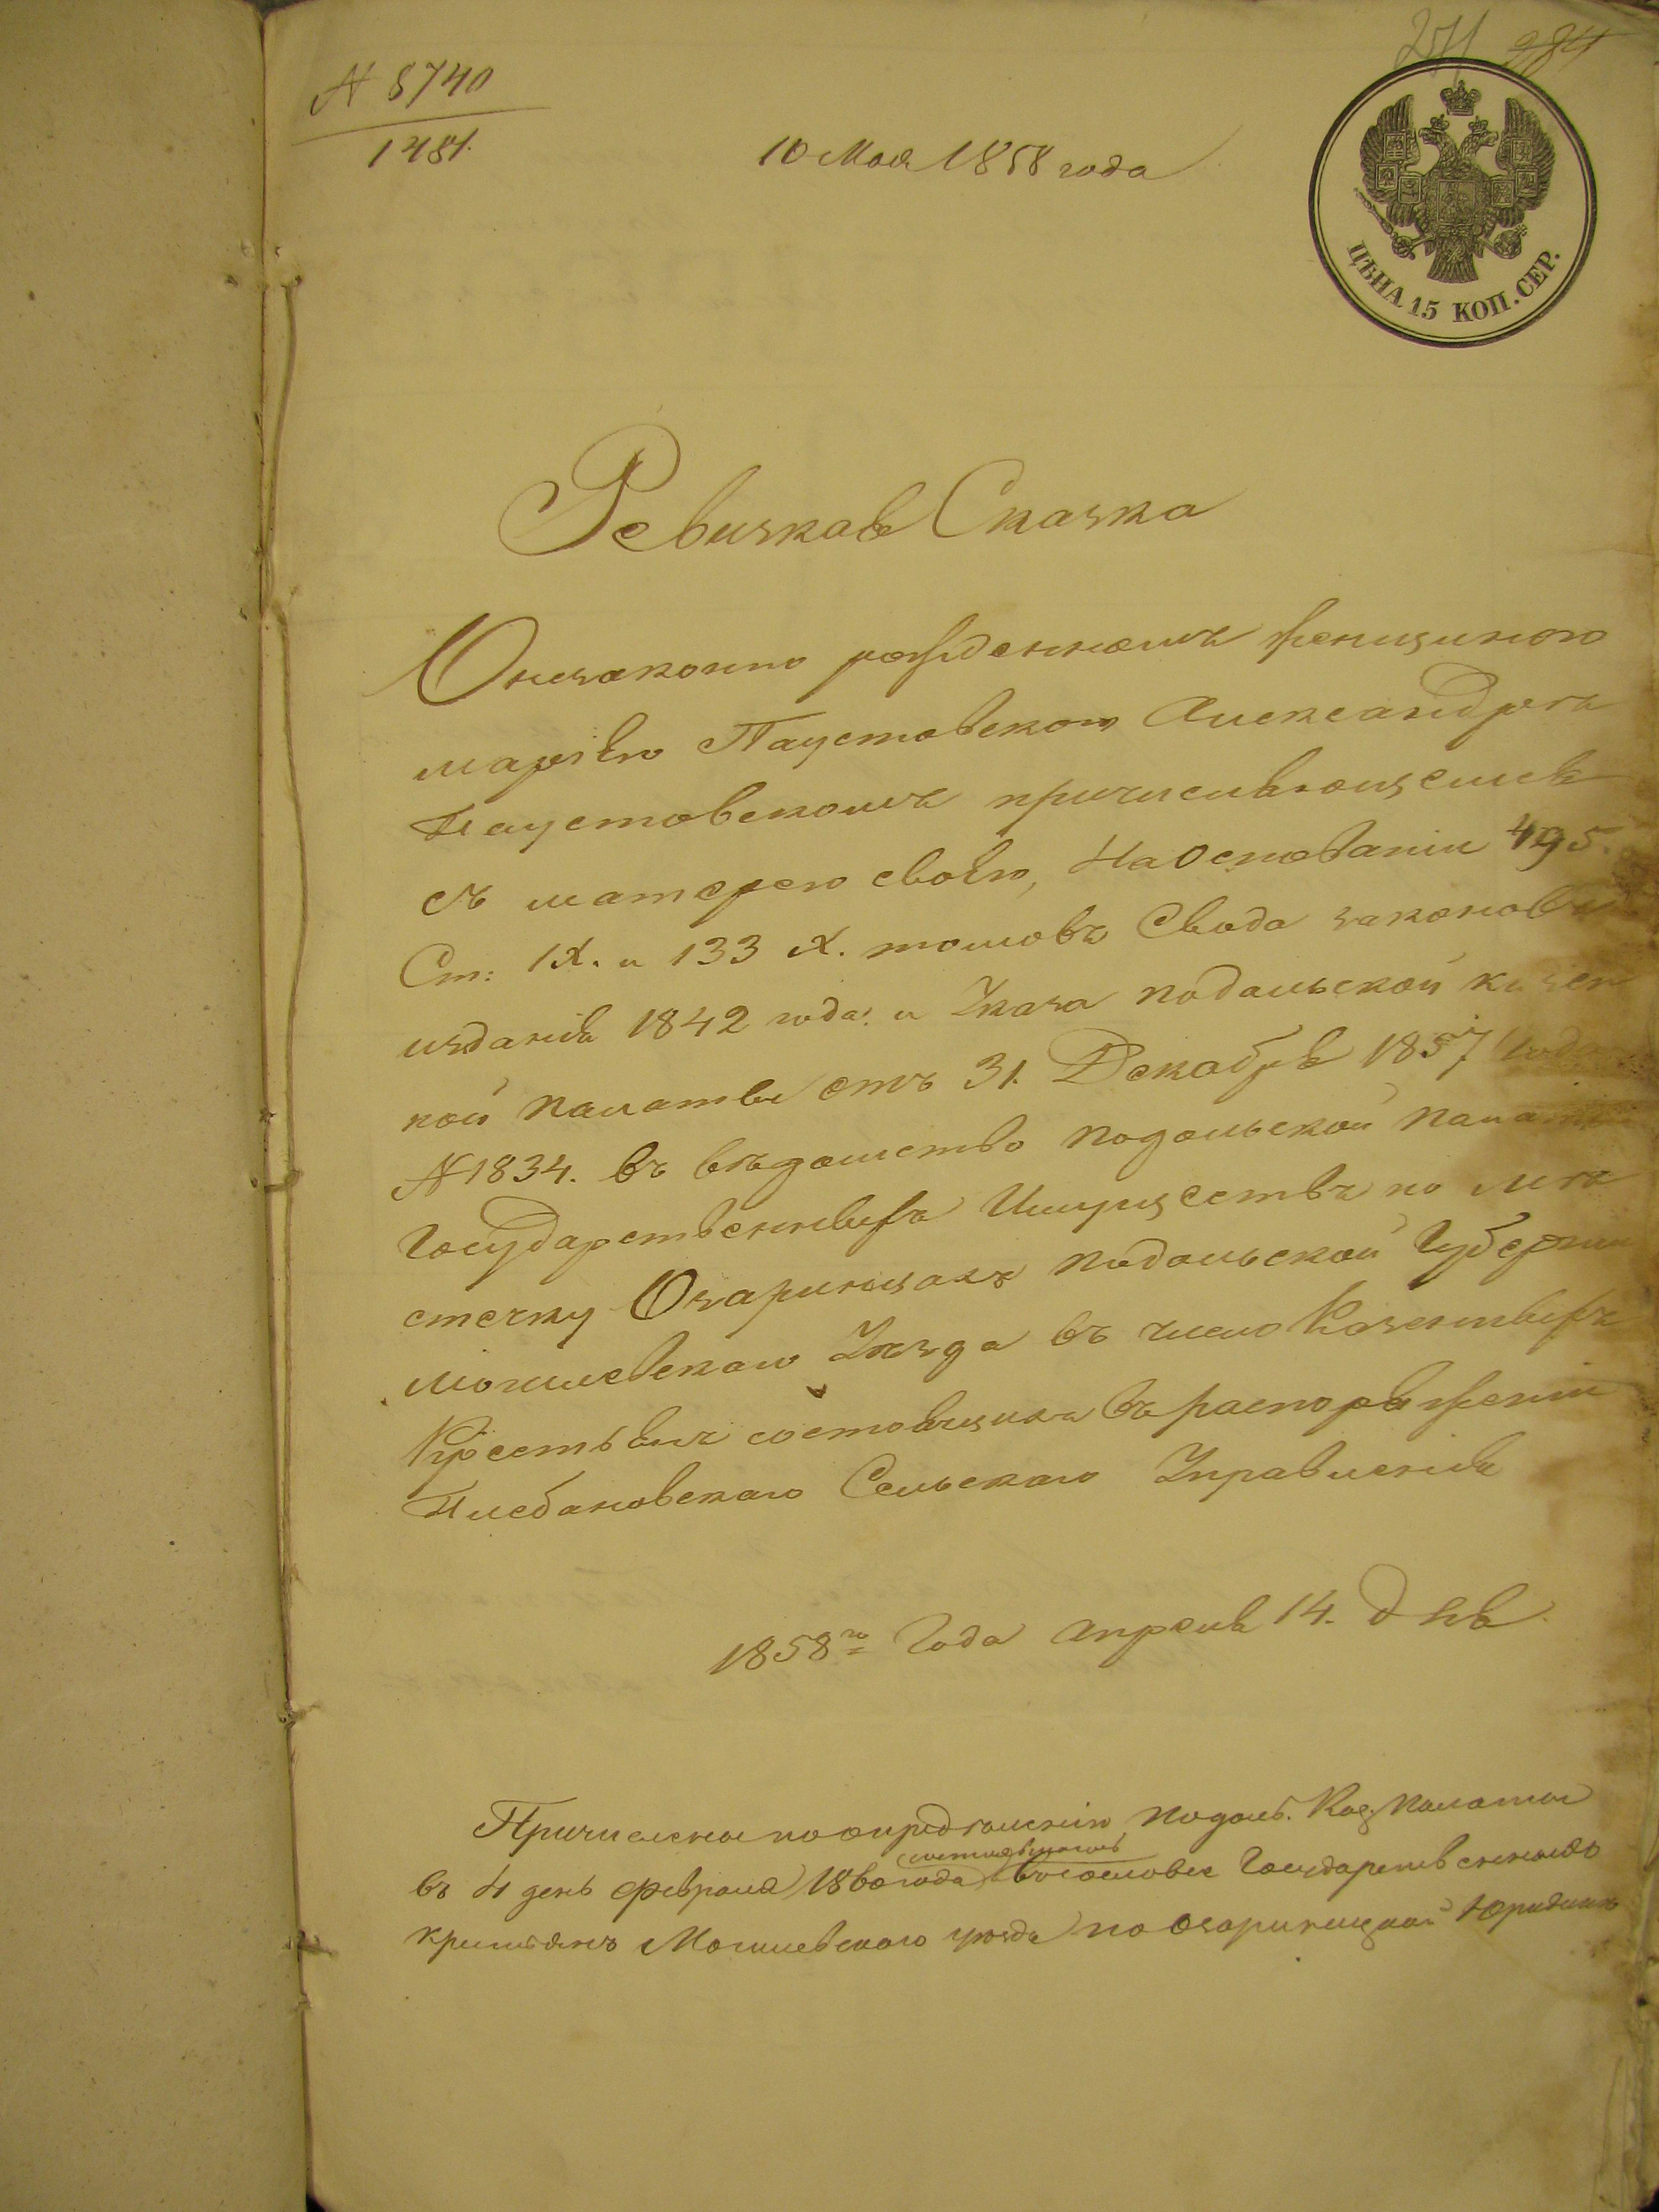 284
N 8740
1481.
10 Мая 1858 года
ЦѢНА 15 КОП. СЕР.
Ревизкая Сказка
О незаконно рожденномъ женщиною
маріею Паустовскою Александрѣ
Паустовскомъ причисляющемся
съ матерею своею, На Основаніи 495.
Ст: IX. и 133 X. томовъ Свода законовъ
изданія 1842 года. и Указа подольской казен
ной палаты отъ 31. Декабря 1857 года
N 1834. въ вѣдомство подольской палаты
Государственныхъ Имуществъ по мѣ
стечку Озаринцахъ подольской Губерніи
могилевскаго Уѣзда въ число Казенныхъ
Крестьянъ состоящихъ въ распоряженіи
Плебановскаго Сельскаго Управленія
1858го Года апреля 14. дня
Причислены по опредѣленію Подол. Каз. Палаты
въ 4 день февраля 1860 года въ сословіе Государственныхъ
крестьянъ Могилевскаго уѣзда по Озаринецкой Юридикѣ